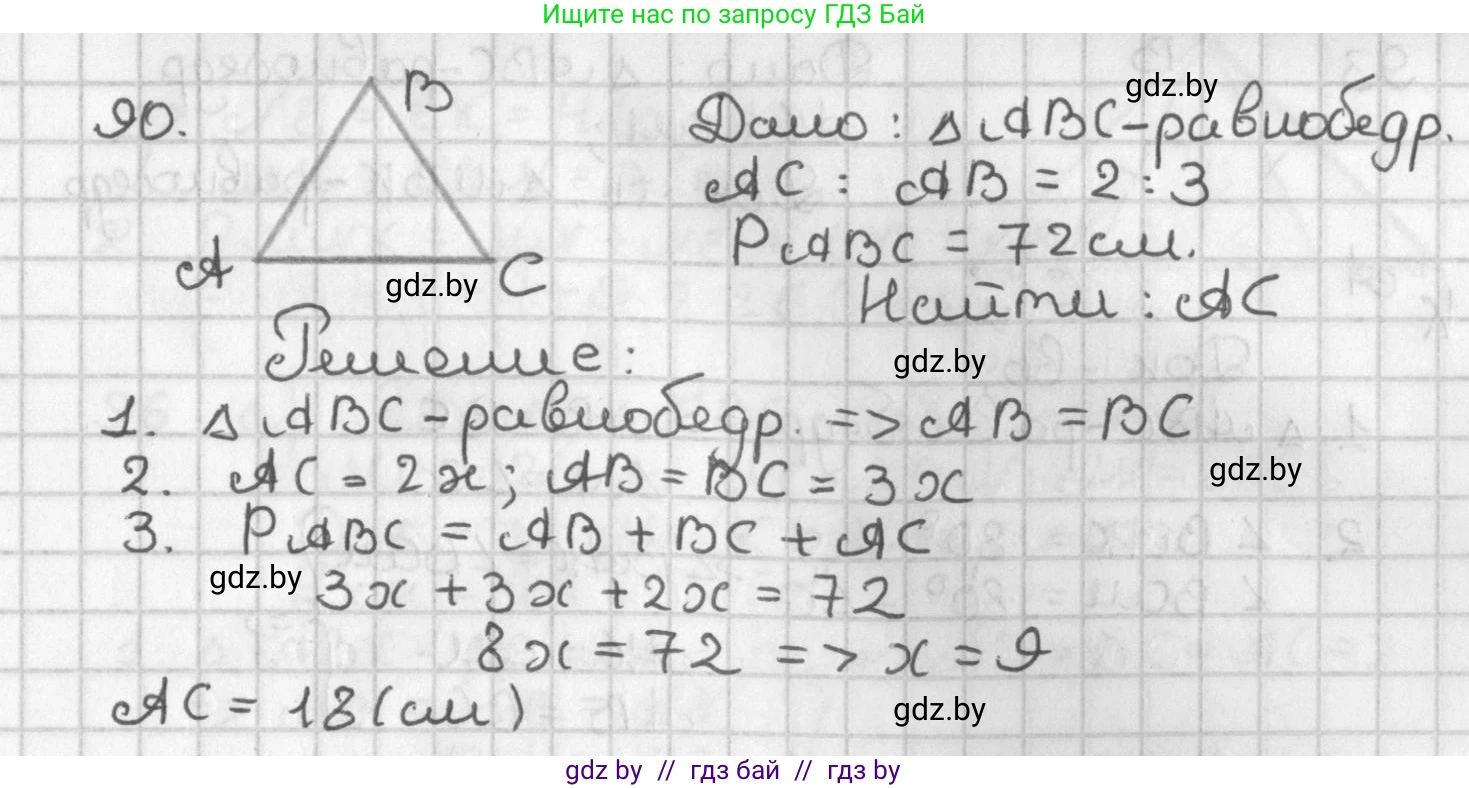 Ищите нас по запросу ГДЗ Бай
90.
B
gdz.by
Дано: △ABC-равнобедр.
AC : AB = 2:3
PABC = 72см.
A
gdz.by
C
Найти: AC
Решение:
gdz.by
1. △ABC-равнобедр. => AB = BC
2. AC = 2x; AB = BC = 3x
gdz.by
3. PABC = AB + BC + AC
gdz.by
3x + 3x + 2x = 72
8x = 72 => x = 9
AC = 18(см)
gdz.by
gdz by // гдз бай // гдз by